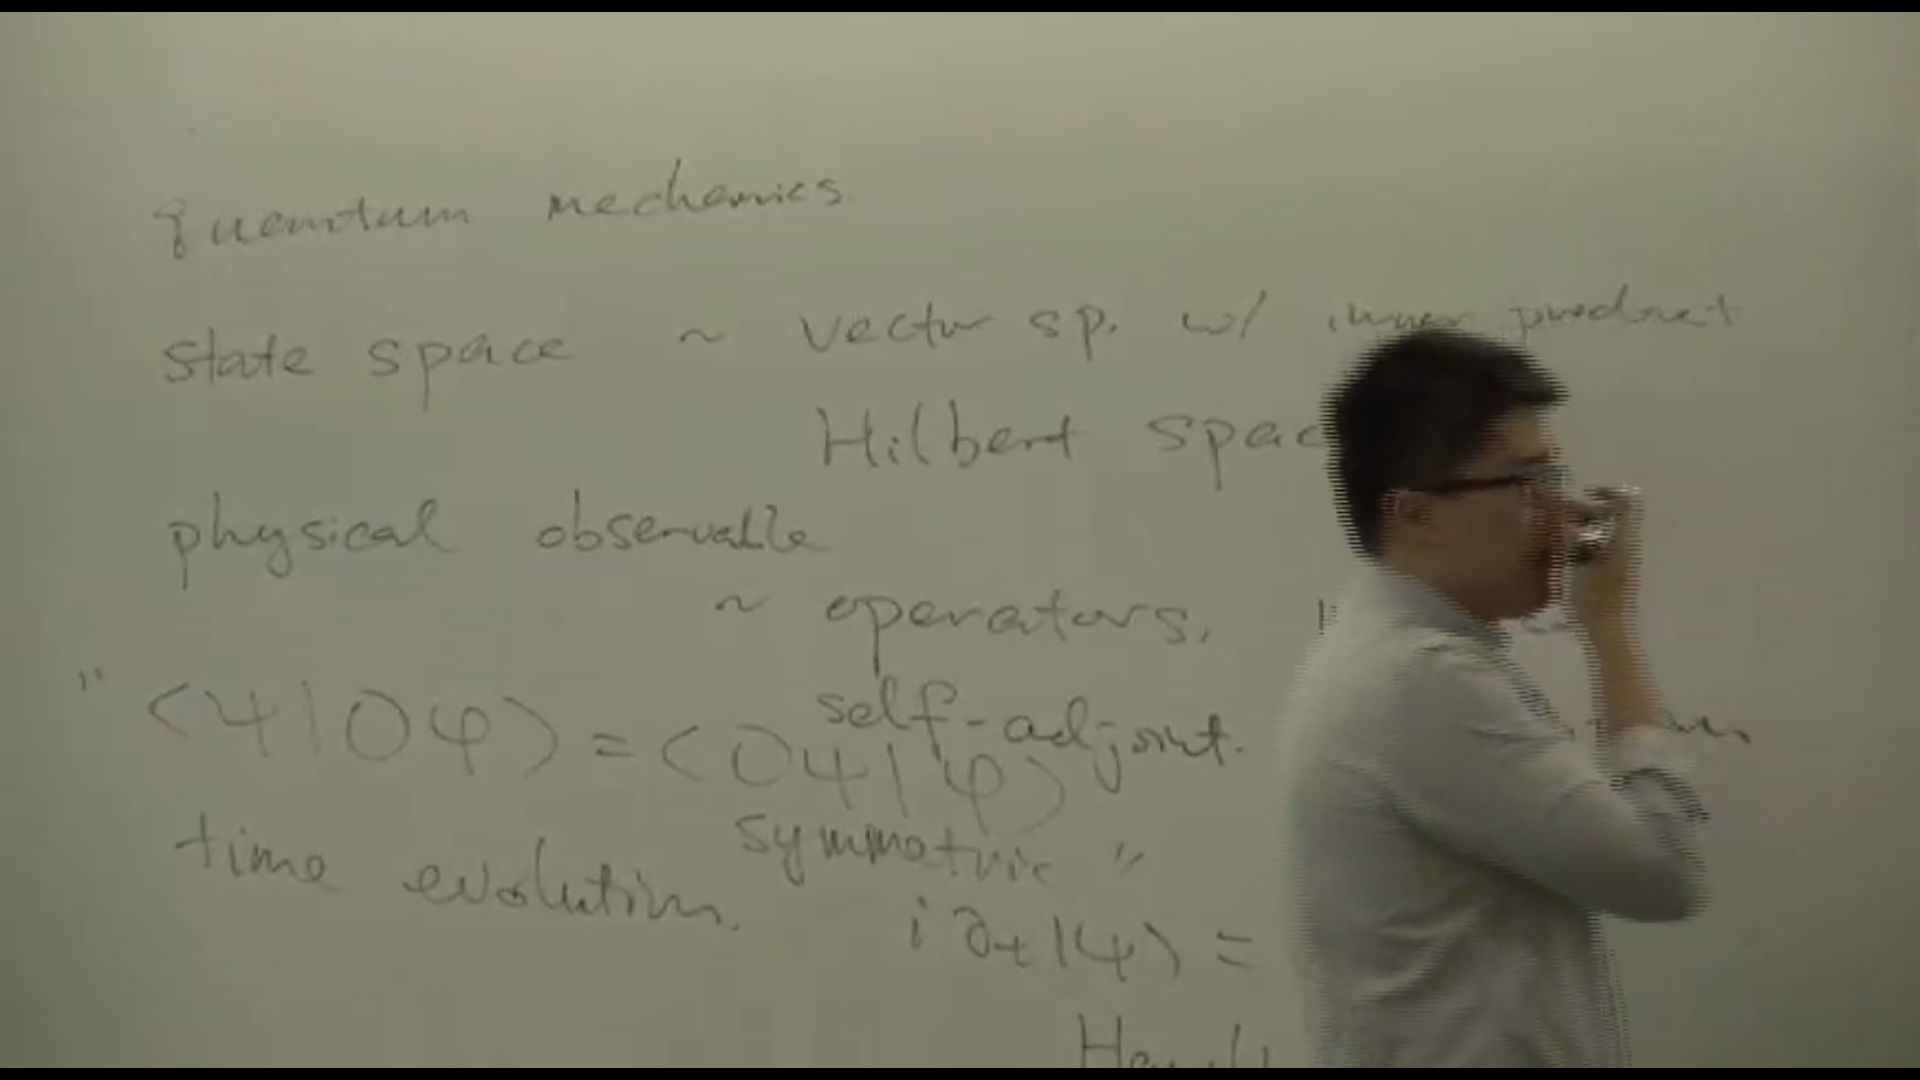 quantum mechanics.
state space ~ vector sp. w/ inner product
Hilbert spac
physical observable
~ operators,
self-adjoint.
"⟨ψ|Oφ⟩ = ⟨Oψ|φ⟩
symmetric"
time evolution.
i∂t|ψ⟩ =